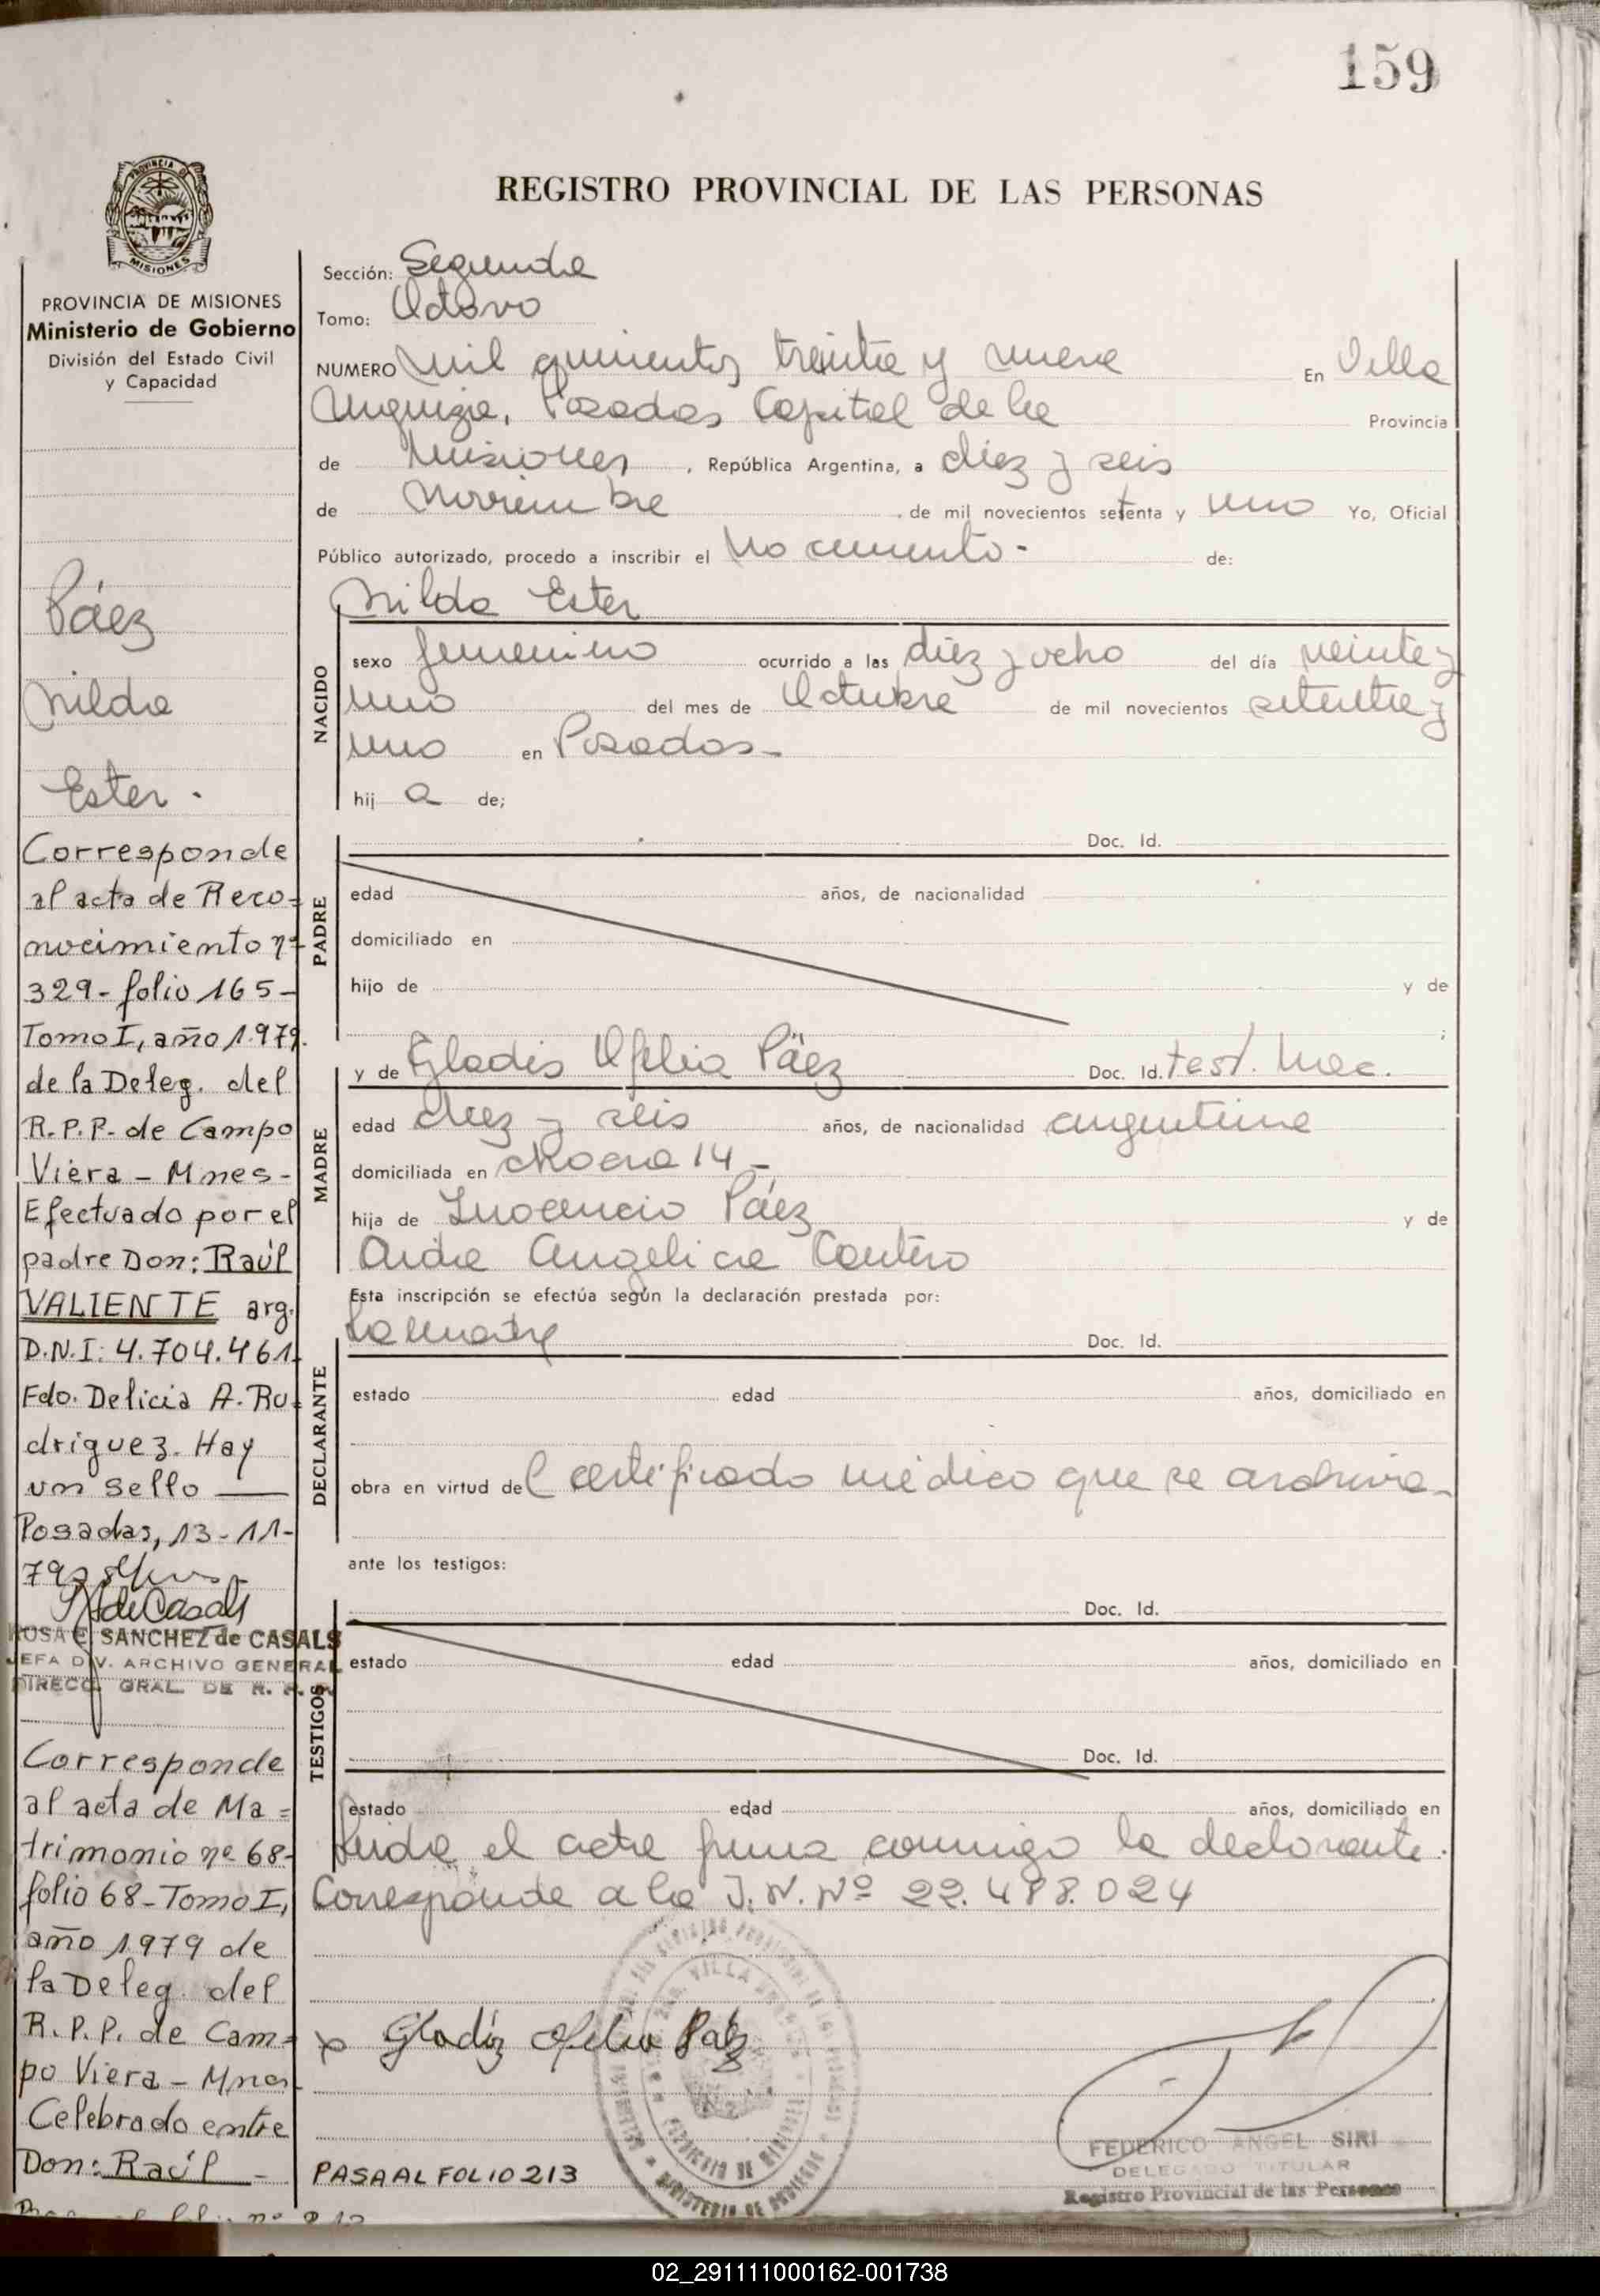 159
REGISTRO PROVINCIAL DE LAS PERSONAS
PROVINCIA DE MISIONES
Ministerio de Gobierno
División del Estado Civil
y Capacidad
Páez
Nilda
Ester.
Corresponde
al acta de Reco-
nocimiento nº
329- folio 165-
Tomo I, año 1979.
de la Deleg. del
R.P.P. de Campo
Viera - Mnes-
Efectuado por el
padre Don: Raúl
VALIENTE arg.
D.N.I: 4.704.461
Fdo. Delicia A. Ro-
driguez. Hay
un sello
Posadas, 13-11-
79
ROSA E. SANCHEZ de CASALS
JEFA DIV. ARCHIVO GENERAL
DIRECC. GRAL. DE R. P.
Corresponde
al acta de Ma=
trimonio nº 68-
folio 68-Tomo I,
año 1979 de
la Deleg. del
R.P.P. de Cam=
po Viera - Mnes.
Celebrado entre
Don: Raúl -
Sección: Segunda
Tomo: Octavo
NUMERO Mil quinientos treinta y nueve En Villa
Urquiza, Posadas Capital de la Provincia
de Misiones, República Argentina, a diez y seis
de Noviembre de mil novecientos setenta y uno Yo, Oficial
Público autorizado, procedo a inscribir el Nacimiento- de:
Nilda Ester
NACIDO
sexo femenino ocurrido a las diez y ocho del día veinte y
uno del mes de Octubre de mil novecientos setenta y
uno en Posadas-
hij a de;
PADRE
Doc. Id.
edad años, de nacionalidad
domiciliado en
hijo de y de
;
MADRE
y de Gladis Ofelia Páez Doc. Id. test. Nac.
edad diez y seis años, de nacionalidad argentina
domiciliada en Chacra 14-
hija de Inocencio Páez y de
Aida Angelica Cantero
Esta inscripción se efectúa según la declaración prestada por:
DECLARANTE
La madre Doc. Id.
estado edad años, domiciliado en
obra en virtud del certificado médico que se archiva-
ante los testigos:
TESTIGOS
Doc. Id.
estado edad años, domiciliado en
Doc. Id.
estado edad años, domiciliado en
Leida el acta firma conmigo la declarante.
Corresponde a la I.N. Nº 22.488.024
x Gladiz Ofelia Paez
FEDERICO ANGEL SIRI
DELEGADO TITULAR
Registro Provincial de las Personas
PASA AL FOLIO 213
02_291111000162-001738